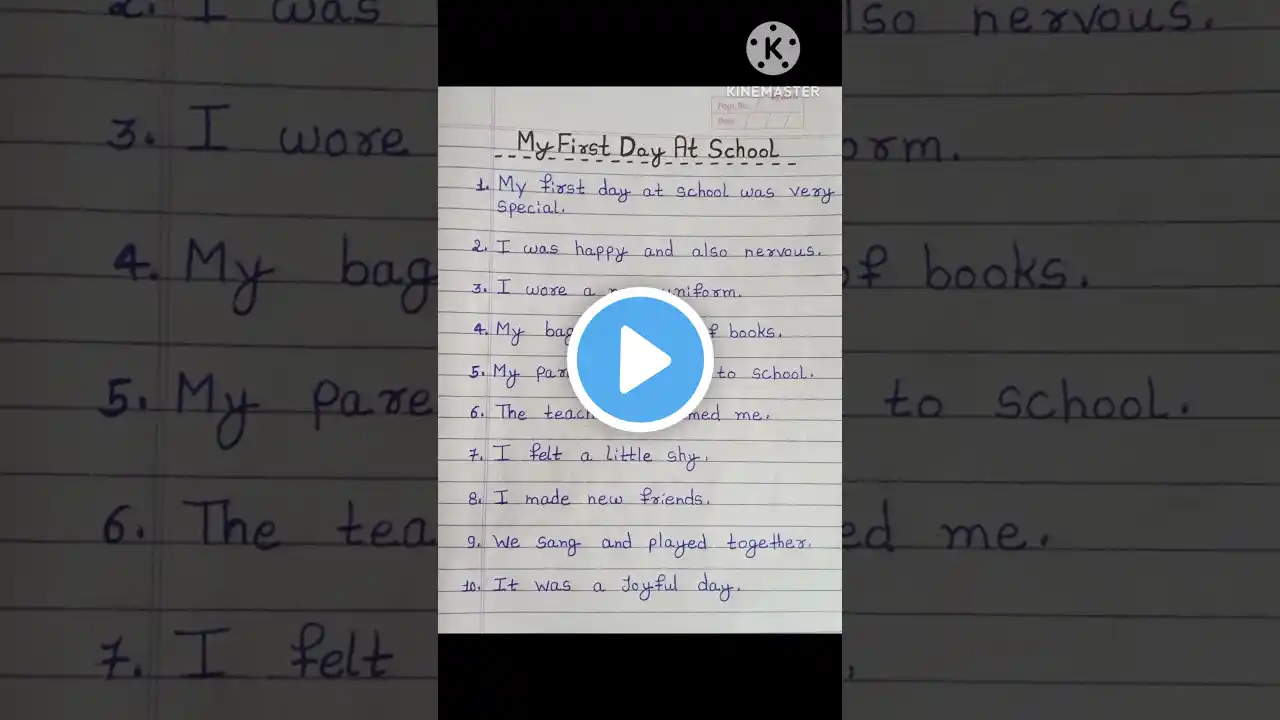 KINEMASTER
Page No.
Date
My First Day At School
1. My first day at school was very
special.
2. I was happy and also nervous.
3. I wore a uniform.
4. My bag books.
5. My to school.
6. The me.
7. I felt a little shy.
8. I made new friends.
9. We sang and played together.
10. It was a Joyful day.